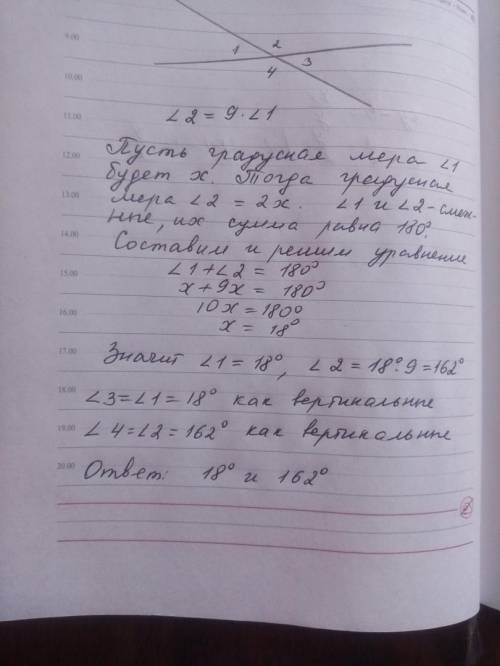 9.00
1 2
4 3
10.00
∠2 = 9·∠1
11.00
Пусть градусная мера ∠1
12.00
будет x. Тогда градусная
мера ∠2 = 2x. ∠1 и ∠2-смеж-
13.00
ные, их сумма равна 180°.
14.00
Составим и решим уравнение
∠1+∠2 = 180°
15.00
x+9x = 180°
10x=180°
16.00
x = 18°
17.00
Значит ∠1=18°, ∠2=18°·9=162°
18.00
∠3=∠1=18° как вертикальные
19.00
∠4=∠2=162° как вертикальные
20.00
Ответ: 18° и 162°